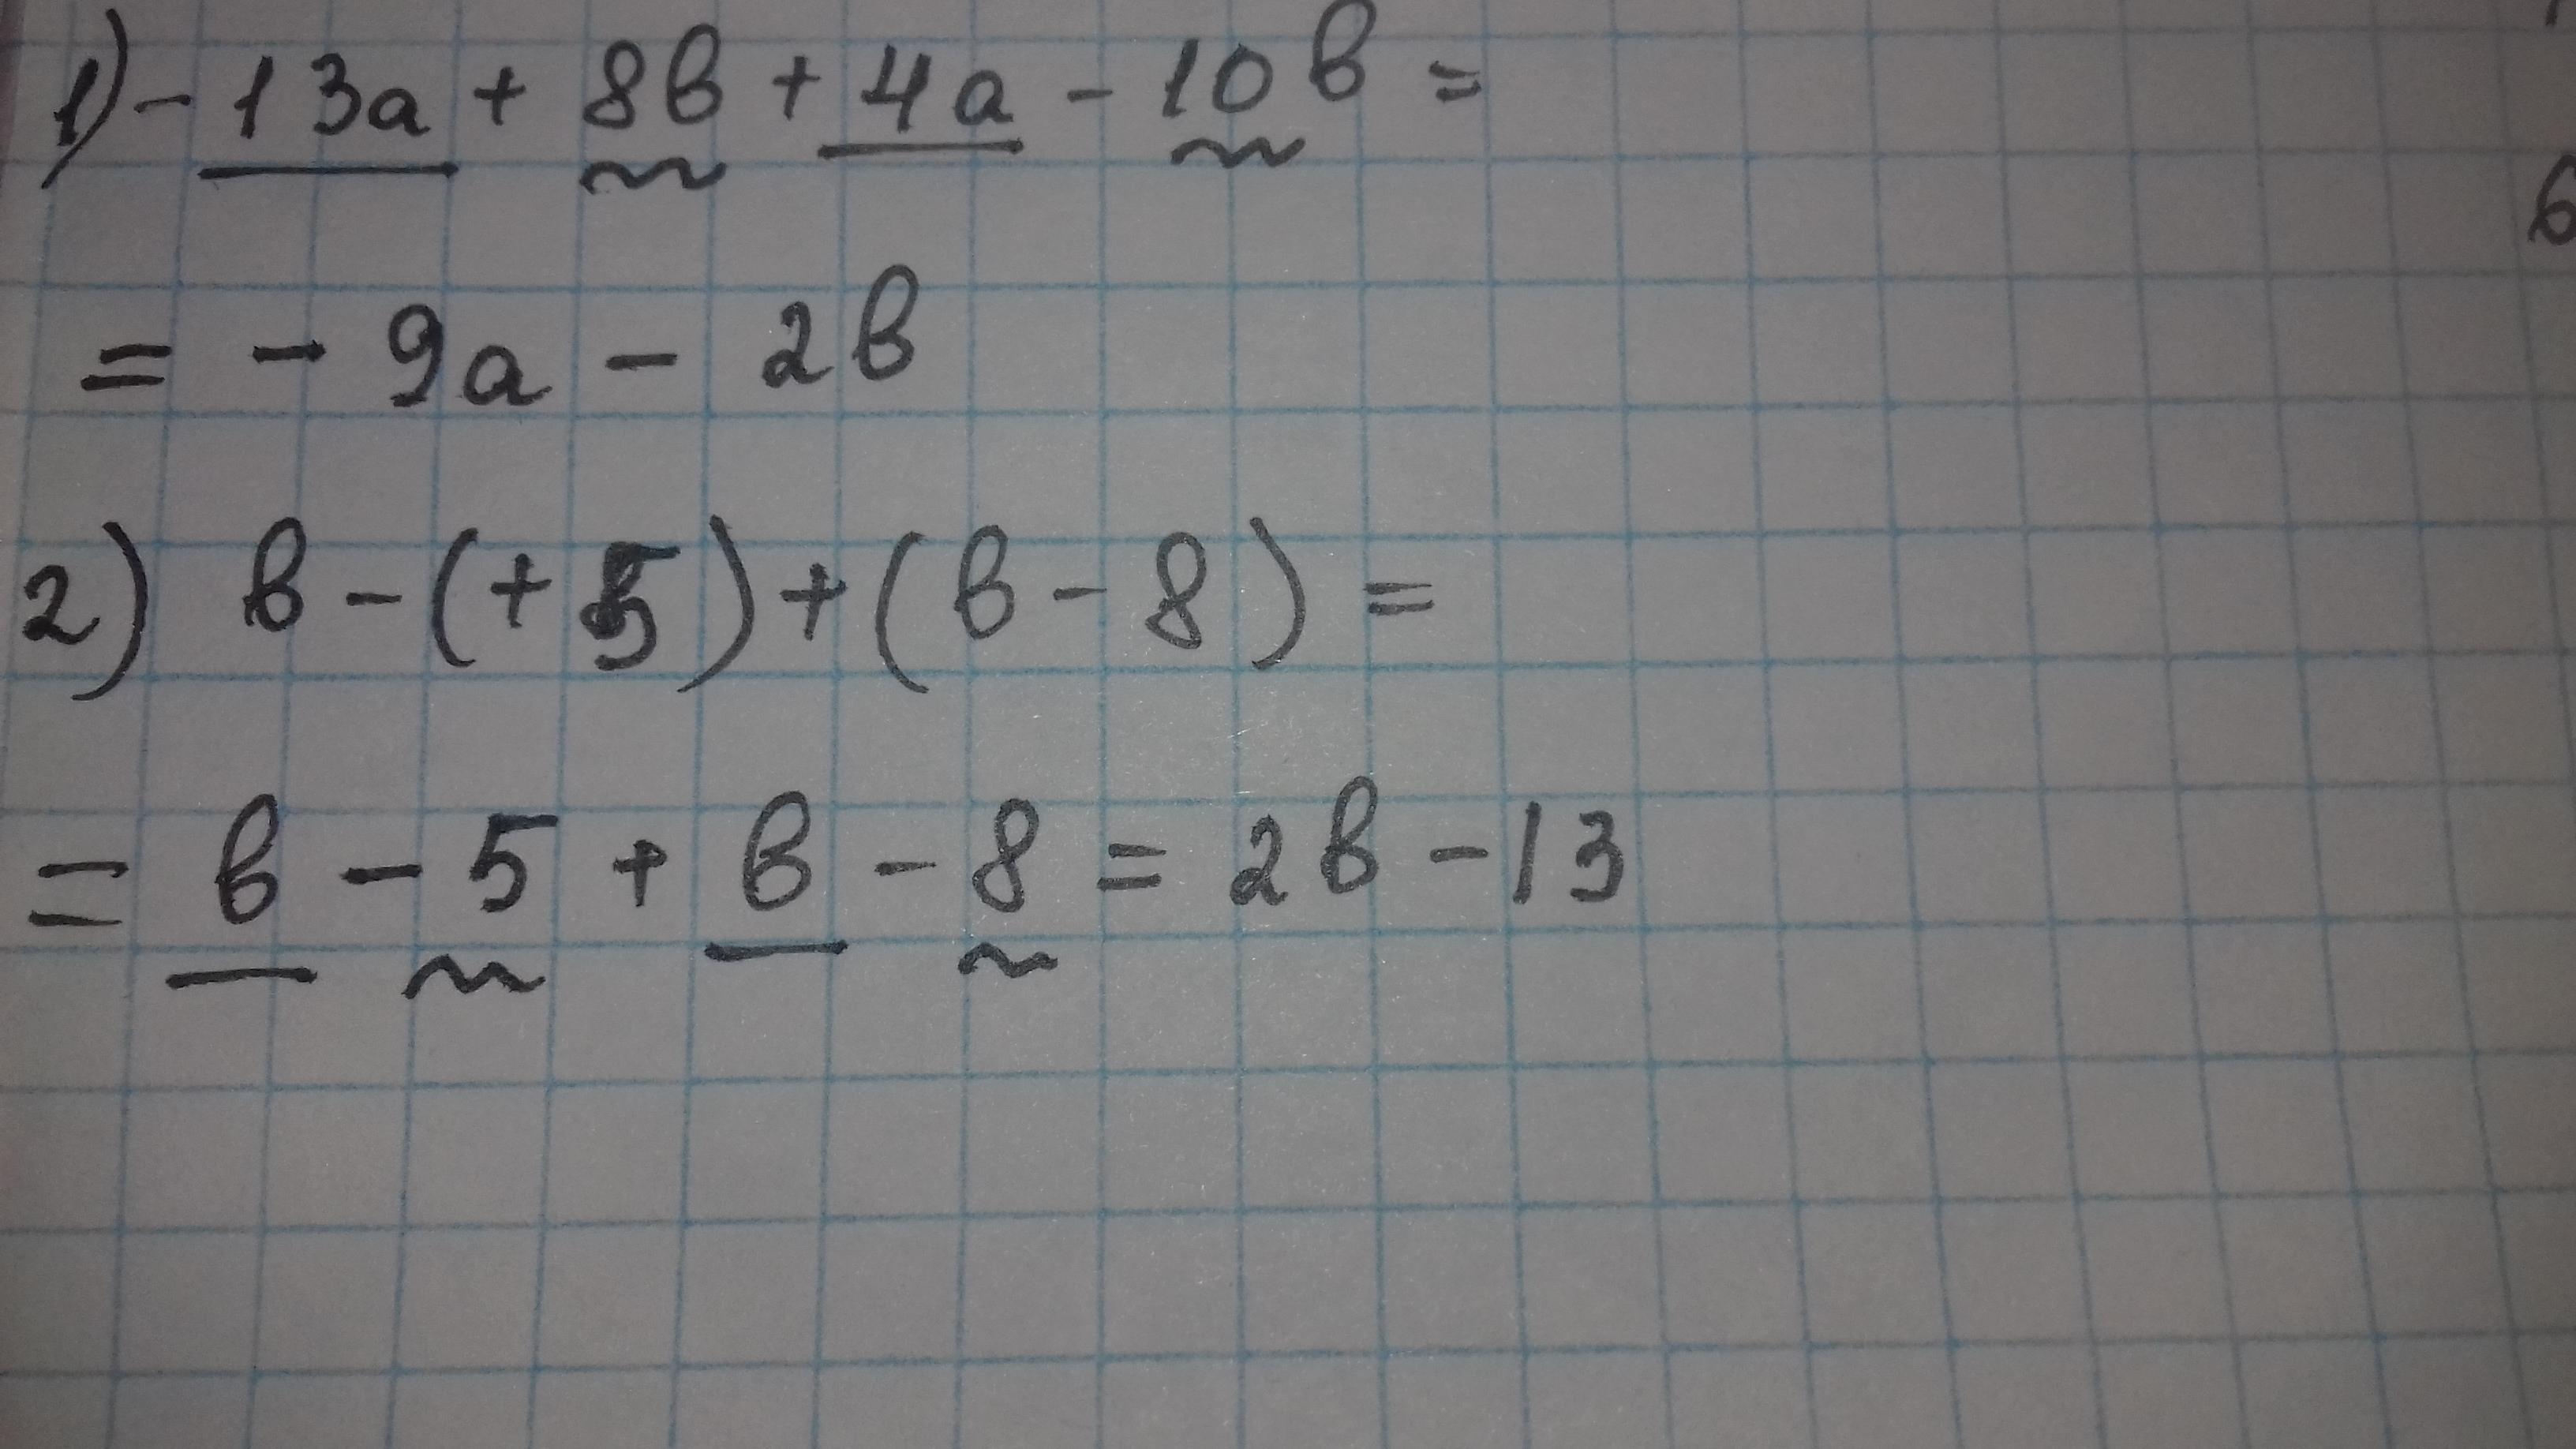 1) - 13a + 8в + 4a - 10в =
= - 9a - 2в
2) в - (+5) + (в - 8) =
= в - 5 + в - 8 = 2в - 13
6